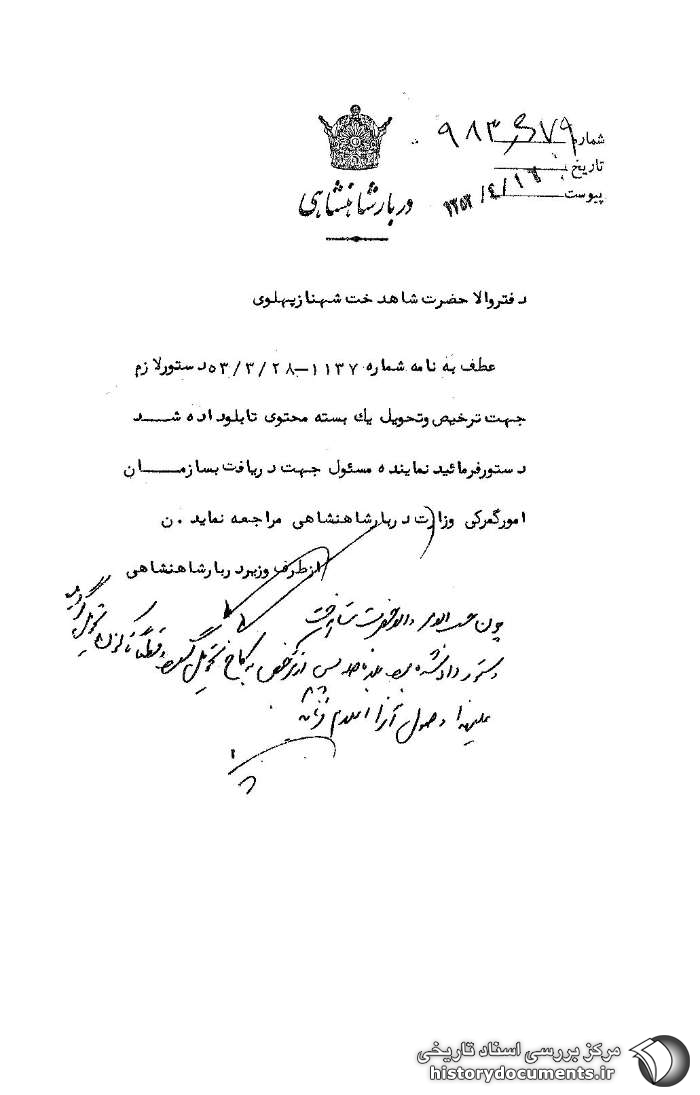 شماره ۹۸۳
تاریخ
پیوست
۱۳۵۳/٤/۱٦
دربار شاهنشاهی
دفتر والاحضرت شاهدخت شهناز پهلوی
عطف به نامه شماره ۱۱۳۷–۵۳/۳/۲۸ دستور لازم
جهت ترخیص و تحویل یك بسته محتوی تابلو داده شد
دستور فرمائید نماینده مسئول جهت دریافت بسازمان
امور گمرکی وزارت دربار شاهنشاهی مراجعه نماید . ن
از طرف وزیر دربار شاهنشاهی
چون حسب الامر والاحضرت
دستور داده شده از ترخیص به کاخ تحویل تاکنون تحویل
علیهذا وصول آنرا اعلام
مرکز بررسی اسناد تاریخی
historydocuments.ir